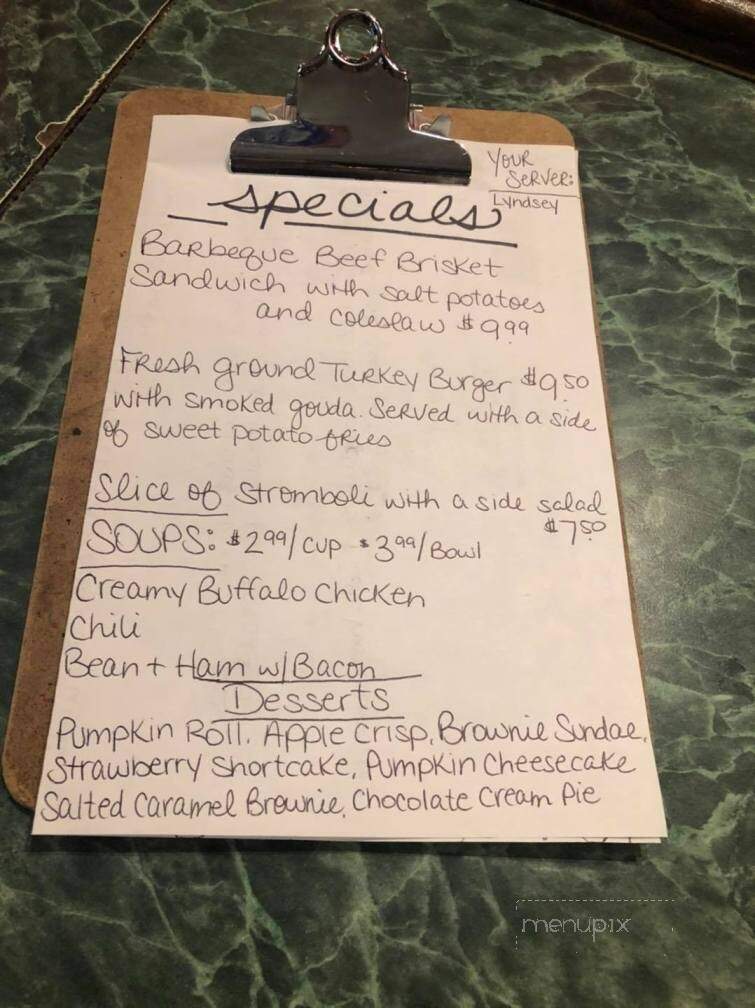 Your
Server:
Lyndsey
Specials
Barbeque Beef Brisket
Sandwich with salt potatoes
and coleslaw $9.99
Fresh ground Turkey Burger $9.50
with smoked gouda. Served with a side
of sweet potato fries
Slice of Stromboli with a side salad
$7.50
SOUPS: $2.99/cup $3.99/Bowl
Creamy Buffalo Chicken
Chili
Bean + Ham w/Bacon
Desserts
Pumpkin Roll, Apple Crisp, Brownie Sundae,
Strawberry Shortcake, Pumpkin Cheesecake
Salted Caramel Brownie, Chocolate Cream Pie
menupix